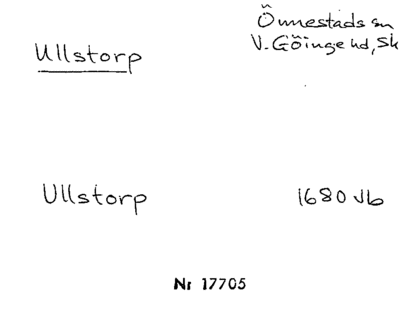 Önnestads sn
V. Göinge hd, Sk
Ullstorp
Ullstorp 1680 Jb
Nr 17705